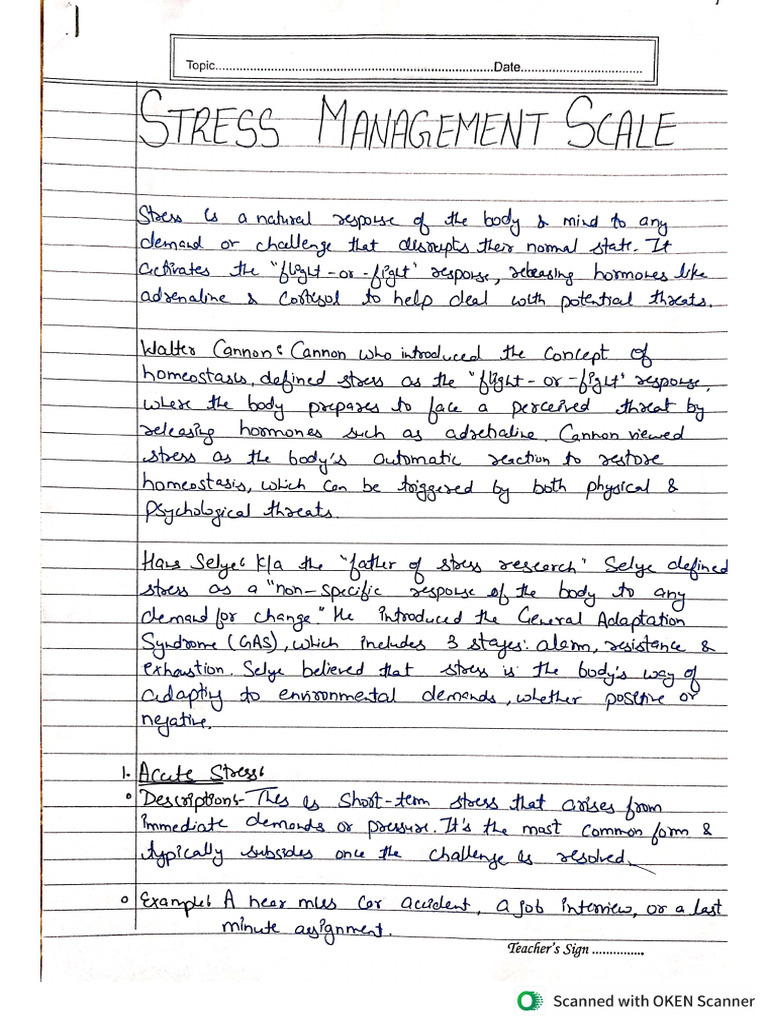 .1
Topic..............................................................................Date...................................
STRESS MANAGEMENT SCALE
Stress is a natural response of the body & mind to any
demand or challenge that disrupts their normal state. It
activates the "flight-or-fight" response, releasing hormones like
adrenaline & cortisol to help deal with potential threats.
Walter Cannon: Cannon who introduced the concept of
homeostasis, defined stress as the "flight-or-fight" response,
where the body prepares to face a perceived threat by
releasing hormones such as adrenaline. Cannon viewed
stress as the body's automatic reaction to restore
homeostasis, which can be triggered by both physical &
psychological threats.
Hans Selye: K/a the "father of stress research" Selye defined
stress as a "non-specific response of the body to any
demand for change." He introduced the General Adaptation
Syndrome (GAS), which includes 3 stages: alarm, resistance &
exhaustion. Selye believed that stress is the body's way of
adapting to environmental demands, whether positive or
negative.
1. Acute Stress:
° Description:- This is short-term stress that arises from
immediate demands or pressure. It's the most common form &
typically subsides once the challenge is resolved.
° Example: A near miss car accident, a job interview, or a last
minute assignment.
Teacher's Sign ...............
Scanned with OKEN Scanner